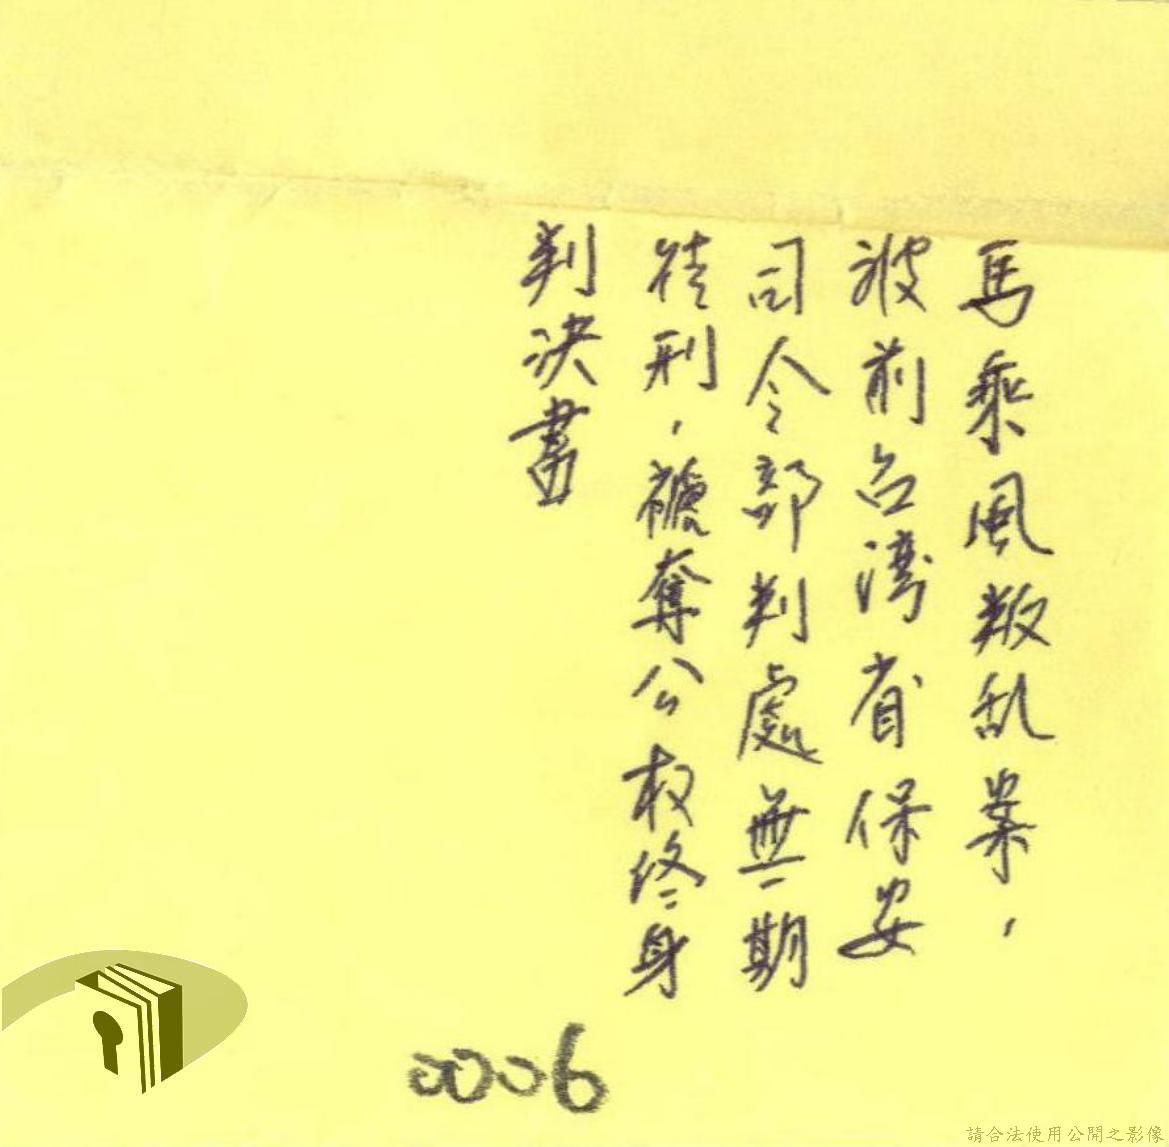 馬乘風叛乱案，
被前台湾省保安
司令部判處無期
徒刑，褫奪公权終身
判決書
0006
請合法使用公開之影像